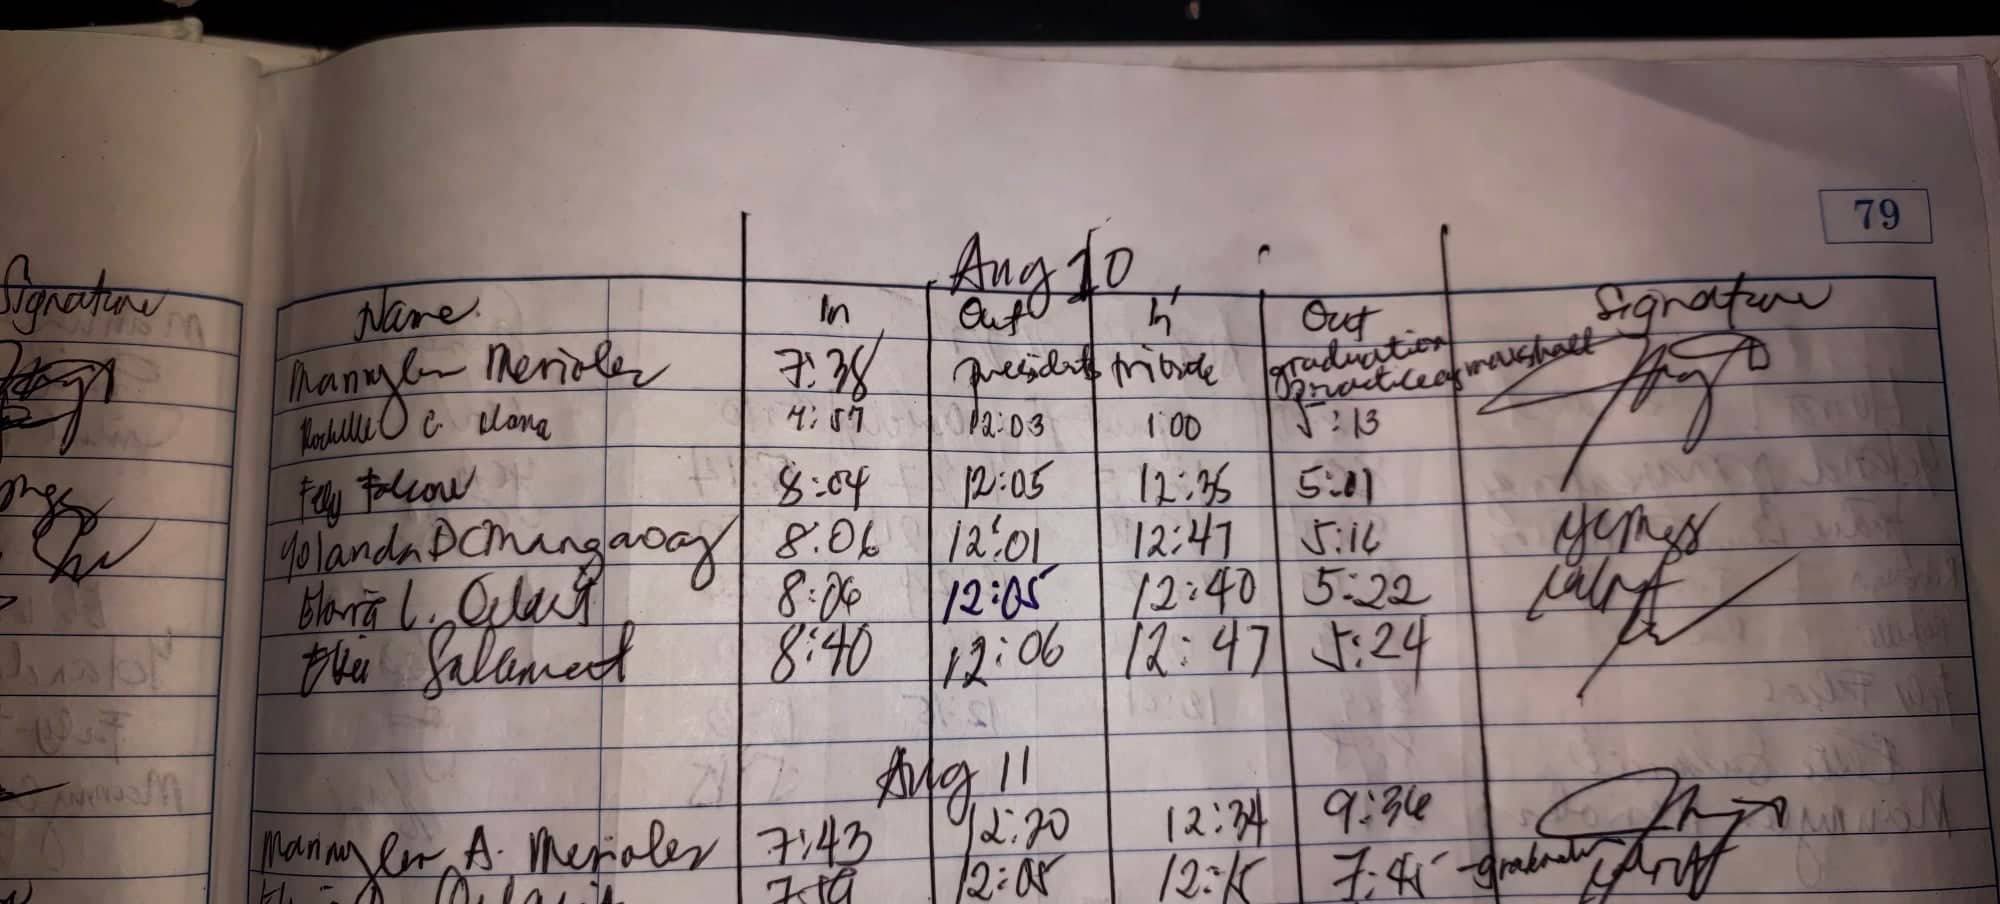 79
Signature
Aug 10
Name In Out In Out Signature
Mannylen Merioles 7:38 presidents tribute graduation practice as marshall
Rochelle C. 7:57 12:03 1:00 5:13
Fely Falcone 8:04 12:05 12:35 5:01
Yolanda DC Mangaoag 8:06 12:01 12:47 5:16
L. 8:06 12:05 12:40 5:22
Salamat 8:40 12:06 12:47 5:24
Aug 11
Mannylen A. Merioles 7:43 12:20 12:34 9:36
7:59 12:05 12:15 7:45